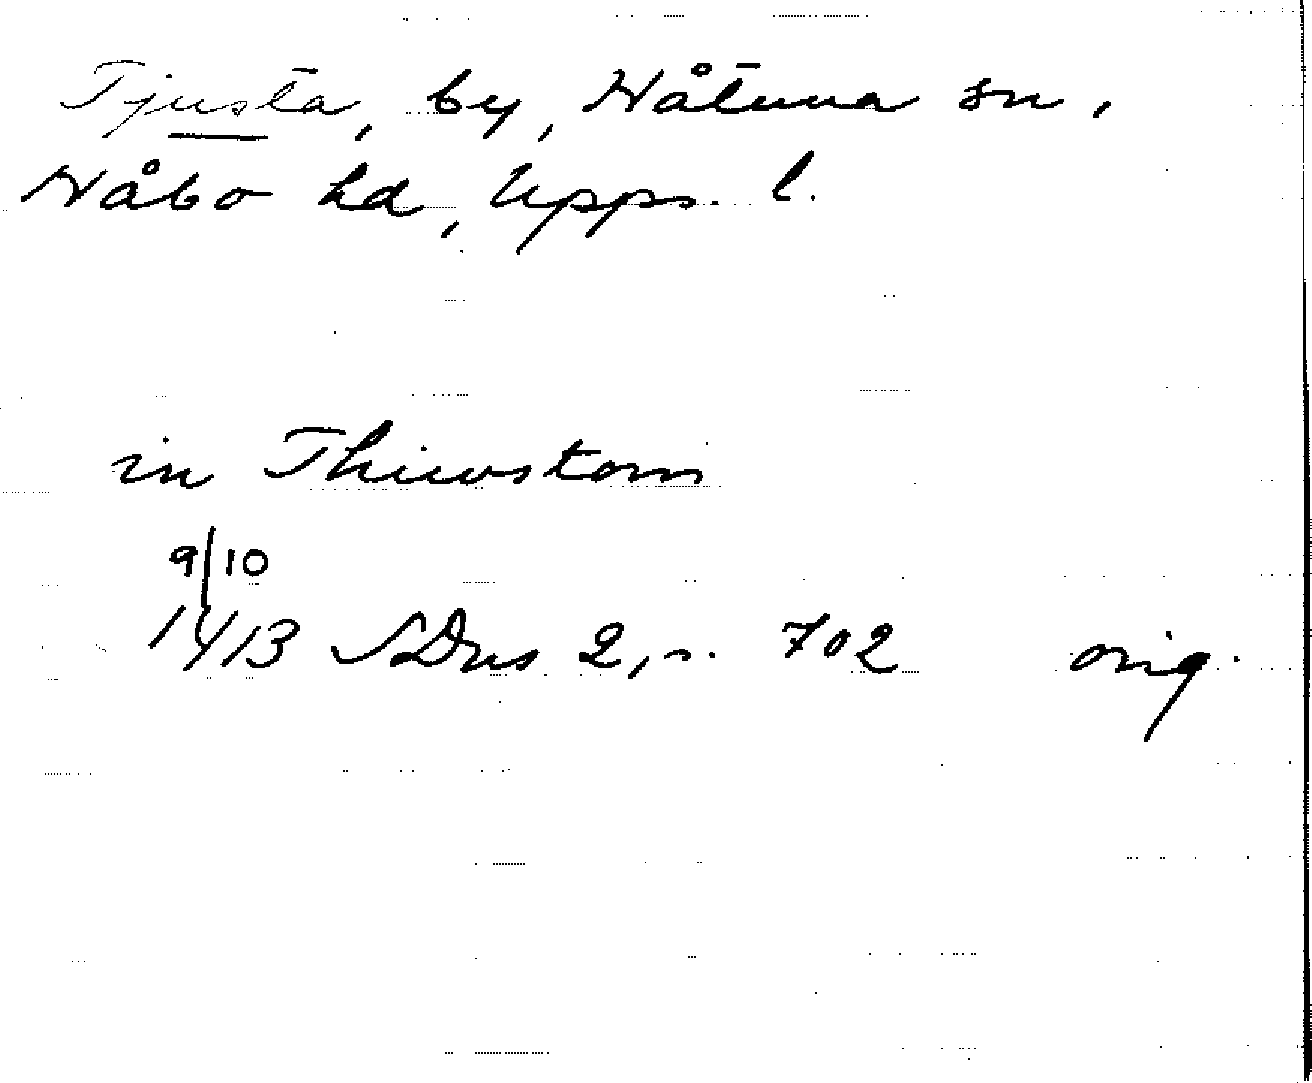 Tjusta, by, Håtuna sn,
Håbo hd, Upps. l.
in Thiwstom
9/10
1413 SDns 2, s. 702 orig.